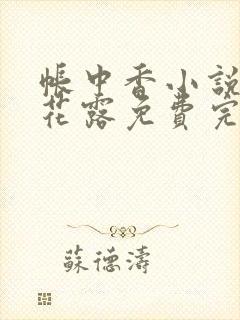 帳中香小說
花露免費完
蘇德濤